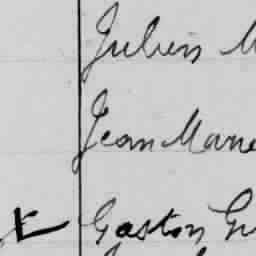 Julien M
Jean Marie
Gaston Gu